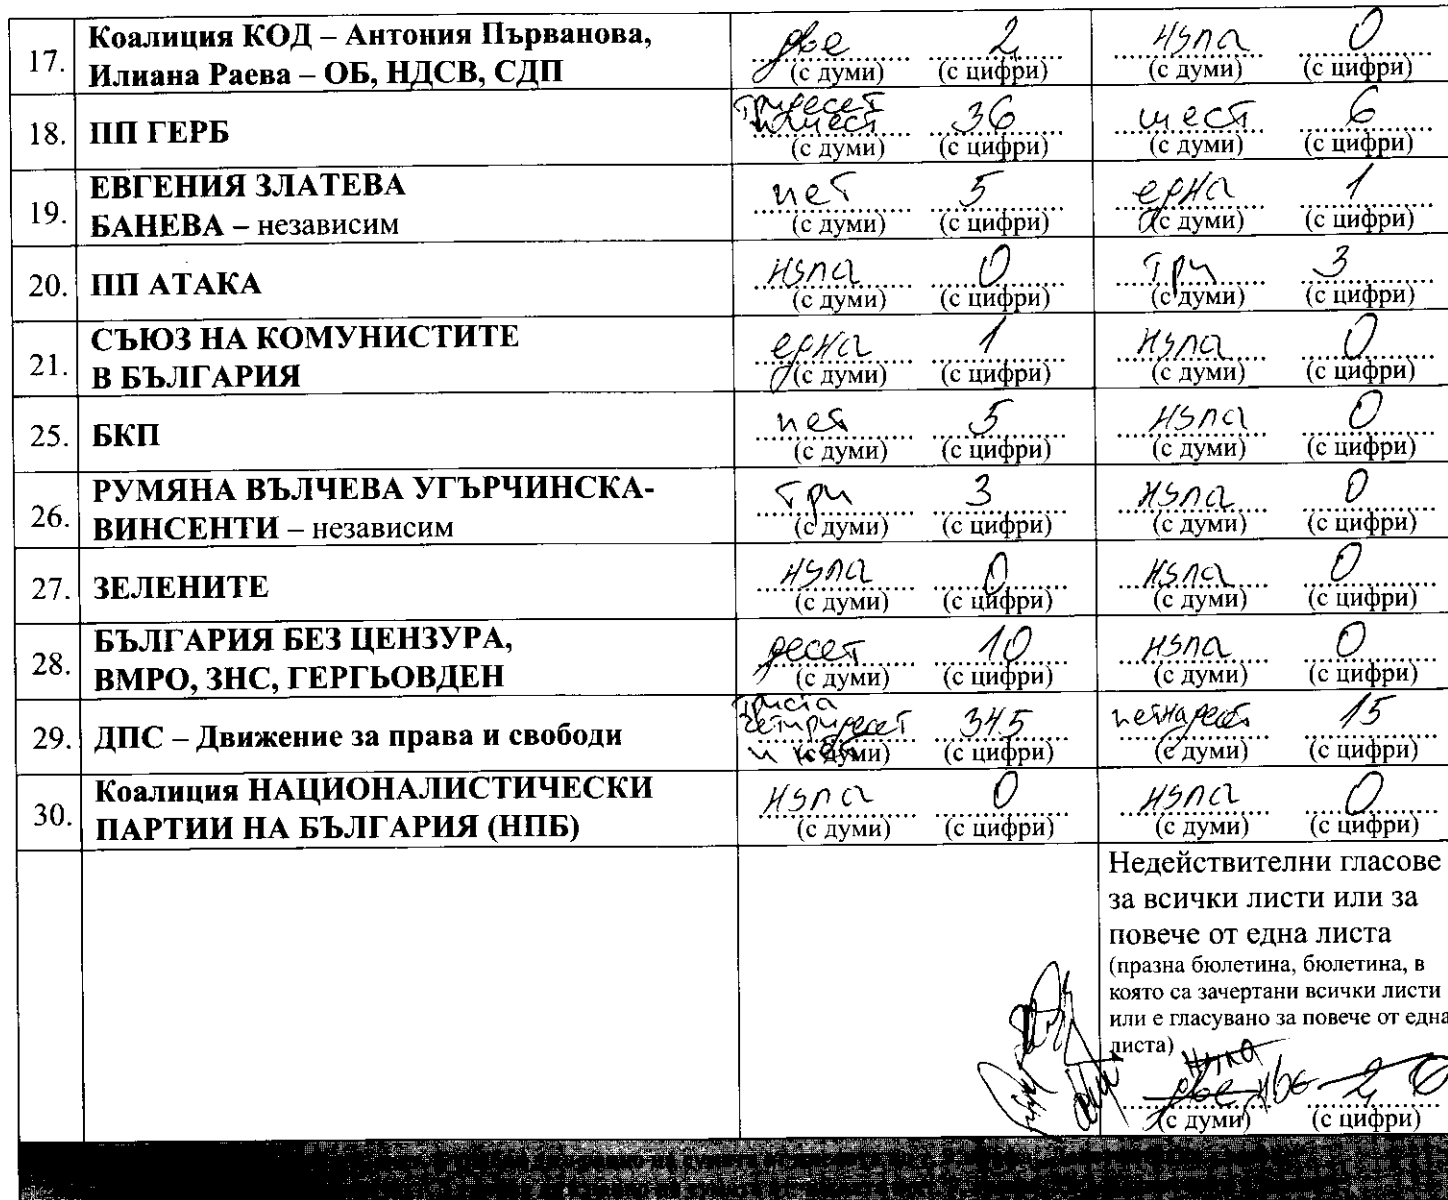 17. Коалиция КОД – Антония Първанова, Илиана Раева – ОБ, НДСВ, СДП
две 2 нула 0
(с думи) (с цифри) (с думи) (с цифри)
18. ПП ГЕРБ
тридесет
и шест 36 шест 6
(с думи) (с цифри) (с думи) (с цифри)
19. ЕВГЕНИЯ ЗЛАТЕВА
БАНЕВА – независим
пет 5 една 1
(с думи) (с цифри) (с думи) (с цифри)
20. ПП АТАКА
нула 0 три 3
(с думи) (с цифри) (с думи) (с цифри)
21. СЪЮЗ НА КОМУНИСТИТЕ
В БЪЛГАРИЯ
една 1 нула 0
(с думи) (с цифри) (с думи) (с цифри)
25. БКП
пет 5 нула 0
(с думи) (с цифри) (с думи) (с цифри)
26. РУМЯНА ВЪЛЧЕВА УГЪРЧИНСКА-
ВИНСЕНТИ – независим
три 3 нула 0
(с думи) (с цифри) (с думи) (с цифри)
27. ЗЕЛЕНИТЕ
нула 0 нула 0
(с думи) (с цифри) (с думи) (с цифри)
28. БЪЛГАРИЯ БЕЗ ЦЕНЗУРА,
ВМРО, ЗНС, ГЕРГЬОВДЕН
десет 10 нула 0
(с думи) (с цифри) (с думи) (с цифри)
29. ДПС – Движение за права и свободи
триста
четиридесет 345 петнадесет 15
и пет
(с думи) (с цифри) (с думи) (с цифри)
30. Коалиция НАЦИОНАЛИСТИЧЕСКИ
ПАРТИИ НА БЪЛГАРИЯ (НПБ)
нула 0 нула 0
(с думи) (с цифри) (с думи) (с цифри)
Недействителни гласове
за всички листи или за
повече от една листа
(празна бюлетина, бюлетина, в
която са зачертани всички листи
или е гласувано за повече от една
листа)
нула
две 2 0
(с думи) (с цифри)